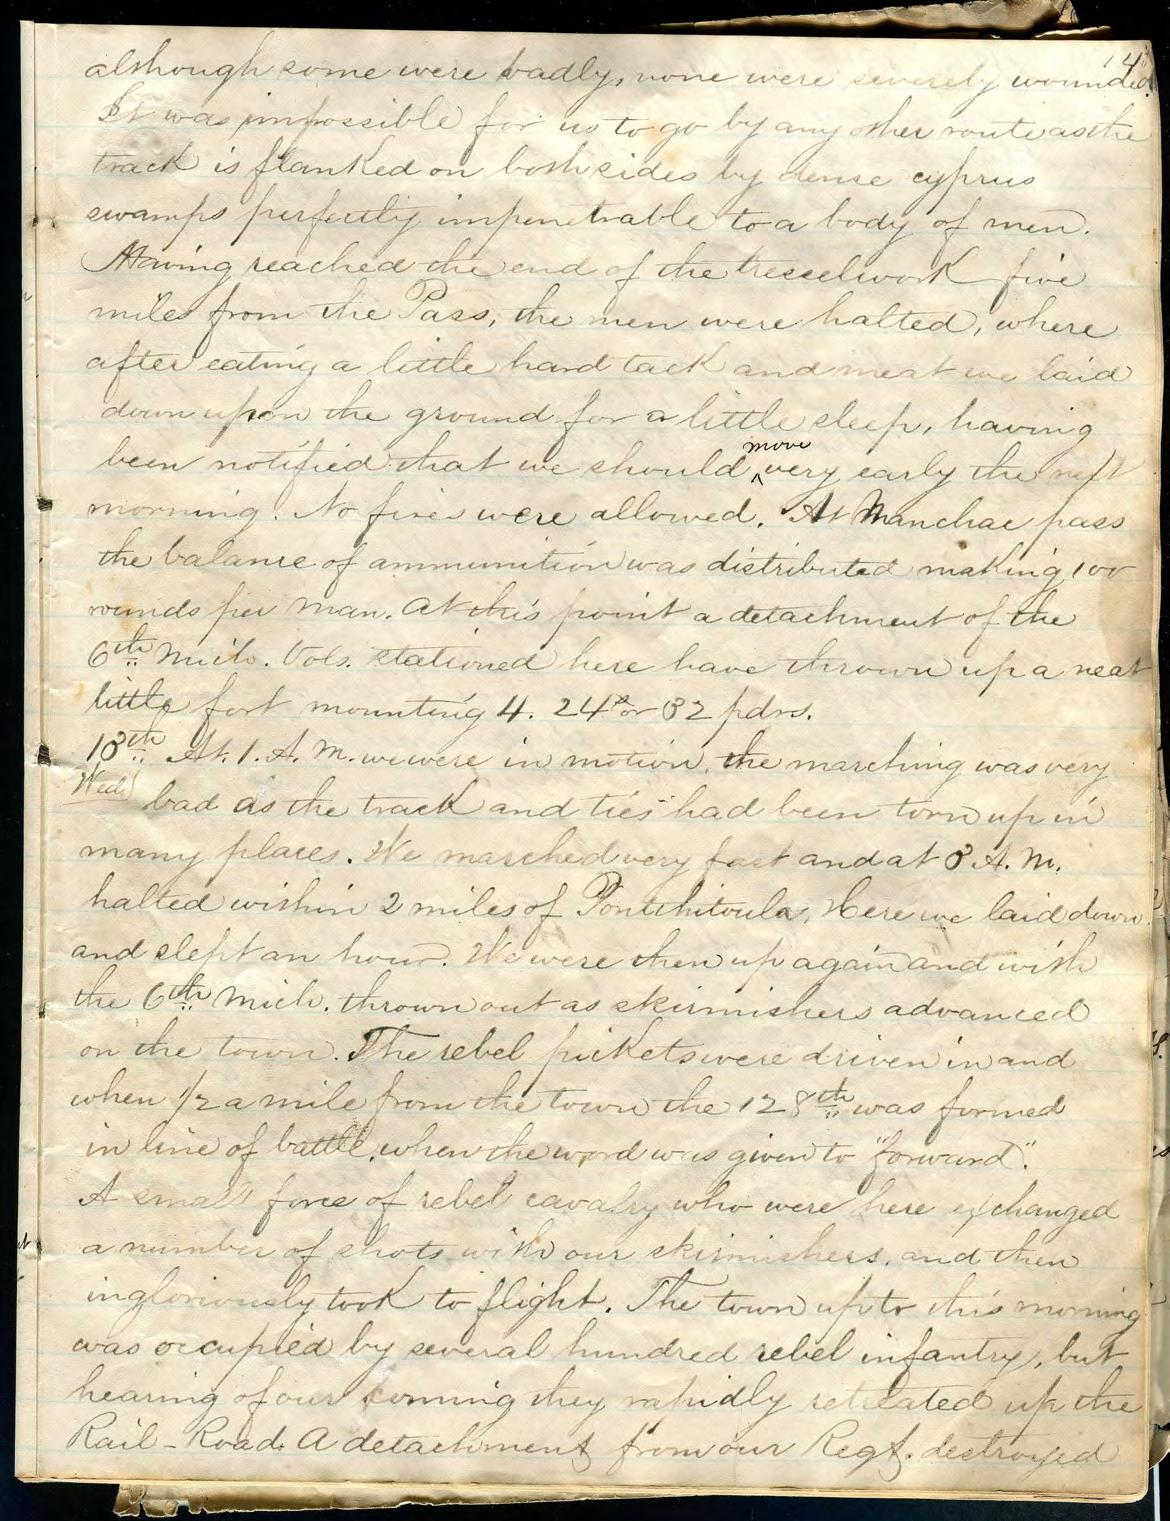 14
although some were badly, none were severely wounded.
It was impossible for us to go by any other route as the
track is flanked on both sides by dense cyprus
swamps perfectly impenetrable to a body of men.
Having reached the end of the tresselwork five
miles from the Pass, the men were halted, where
after eating a little hard tack and meat we laid
down upon the ground for a little sleep, having
been notified that we should move very early the next
morning. No fires were allowed. At Manchac pass
the balance of ammunition was distributed making 100
rounds per man. At this point a detachment of the
6th Mich. Vols. stationed here have thrown up a neat
little fort mounting 4. 24s or 32 pdrs.
13th At 1. A. M. we were in motion, the marching was very
Wed. bad as the track and ties had been torn up in
many places. We marched very fast and at 8 A. M.
halted within 2 miles of Pontchitoula, Here we laid down
and slept an hour. We were then up again and with
the 6th Mich. thrown out as skirmishers advanced
on the town. The rebel pickets were driven in and
when 1/2 a mile from the town the 128th was formed
in line of battle, when the word was given to "forward".
A small force of rebel cavalry who were here exchanged
a number of shots with our skirmishers, and then
ingloriously took to flight. The town up to this morning
was occupied by several hundred rebel infantry, but
hearing of our coming they rapidly retreated up the
Rail-Road. A detachment from our Regt. destroyed